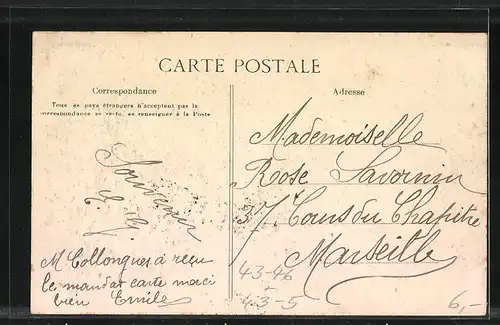 CARTE POSTALE
Correspondance
Tous les pays étrangers n'acceptent pas la
correspondance au recto, se renseigner à la Poste
Souvenir
M Collongues à reçu
le mandat carte merci
bien Emile
Adresse
Mademoiselle
Rose Savornin
37. Cours du Chapitre
Marseille
43-46
43-5
6,-